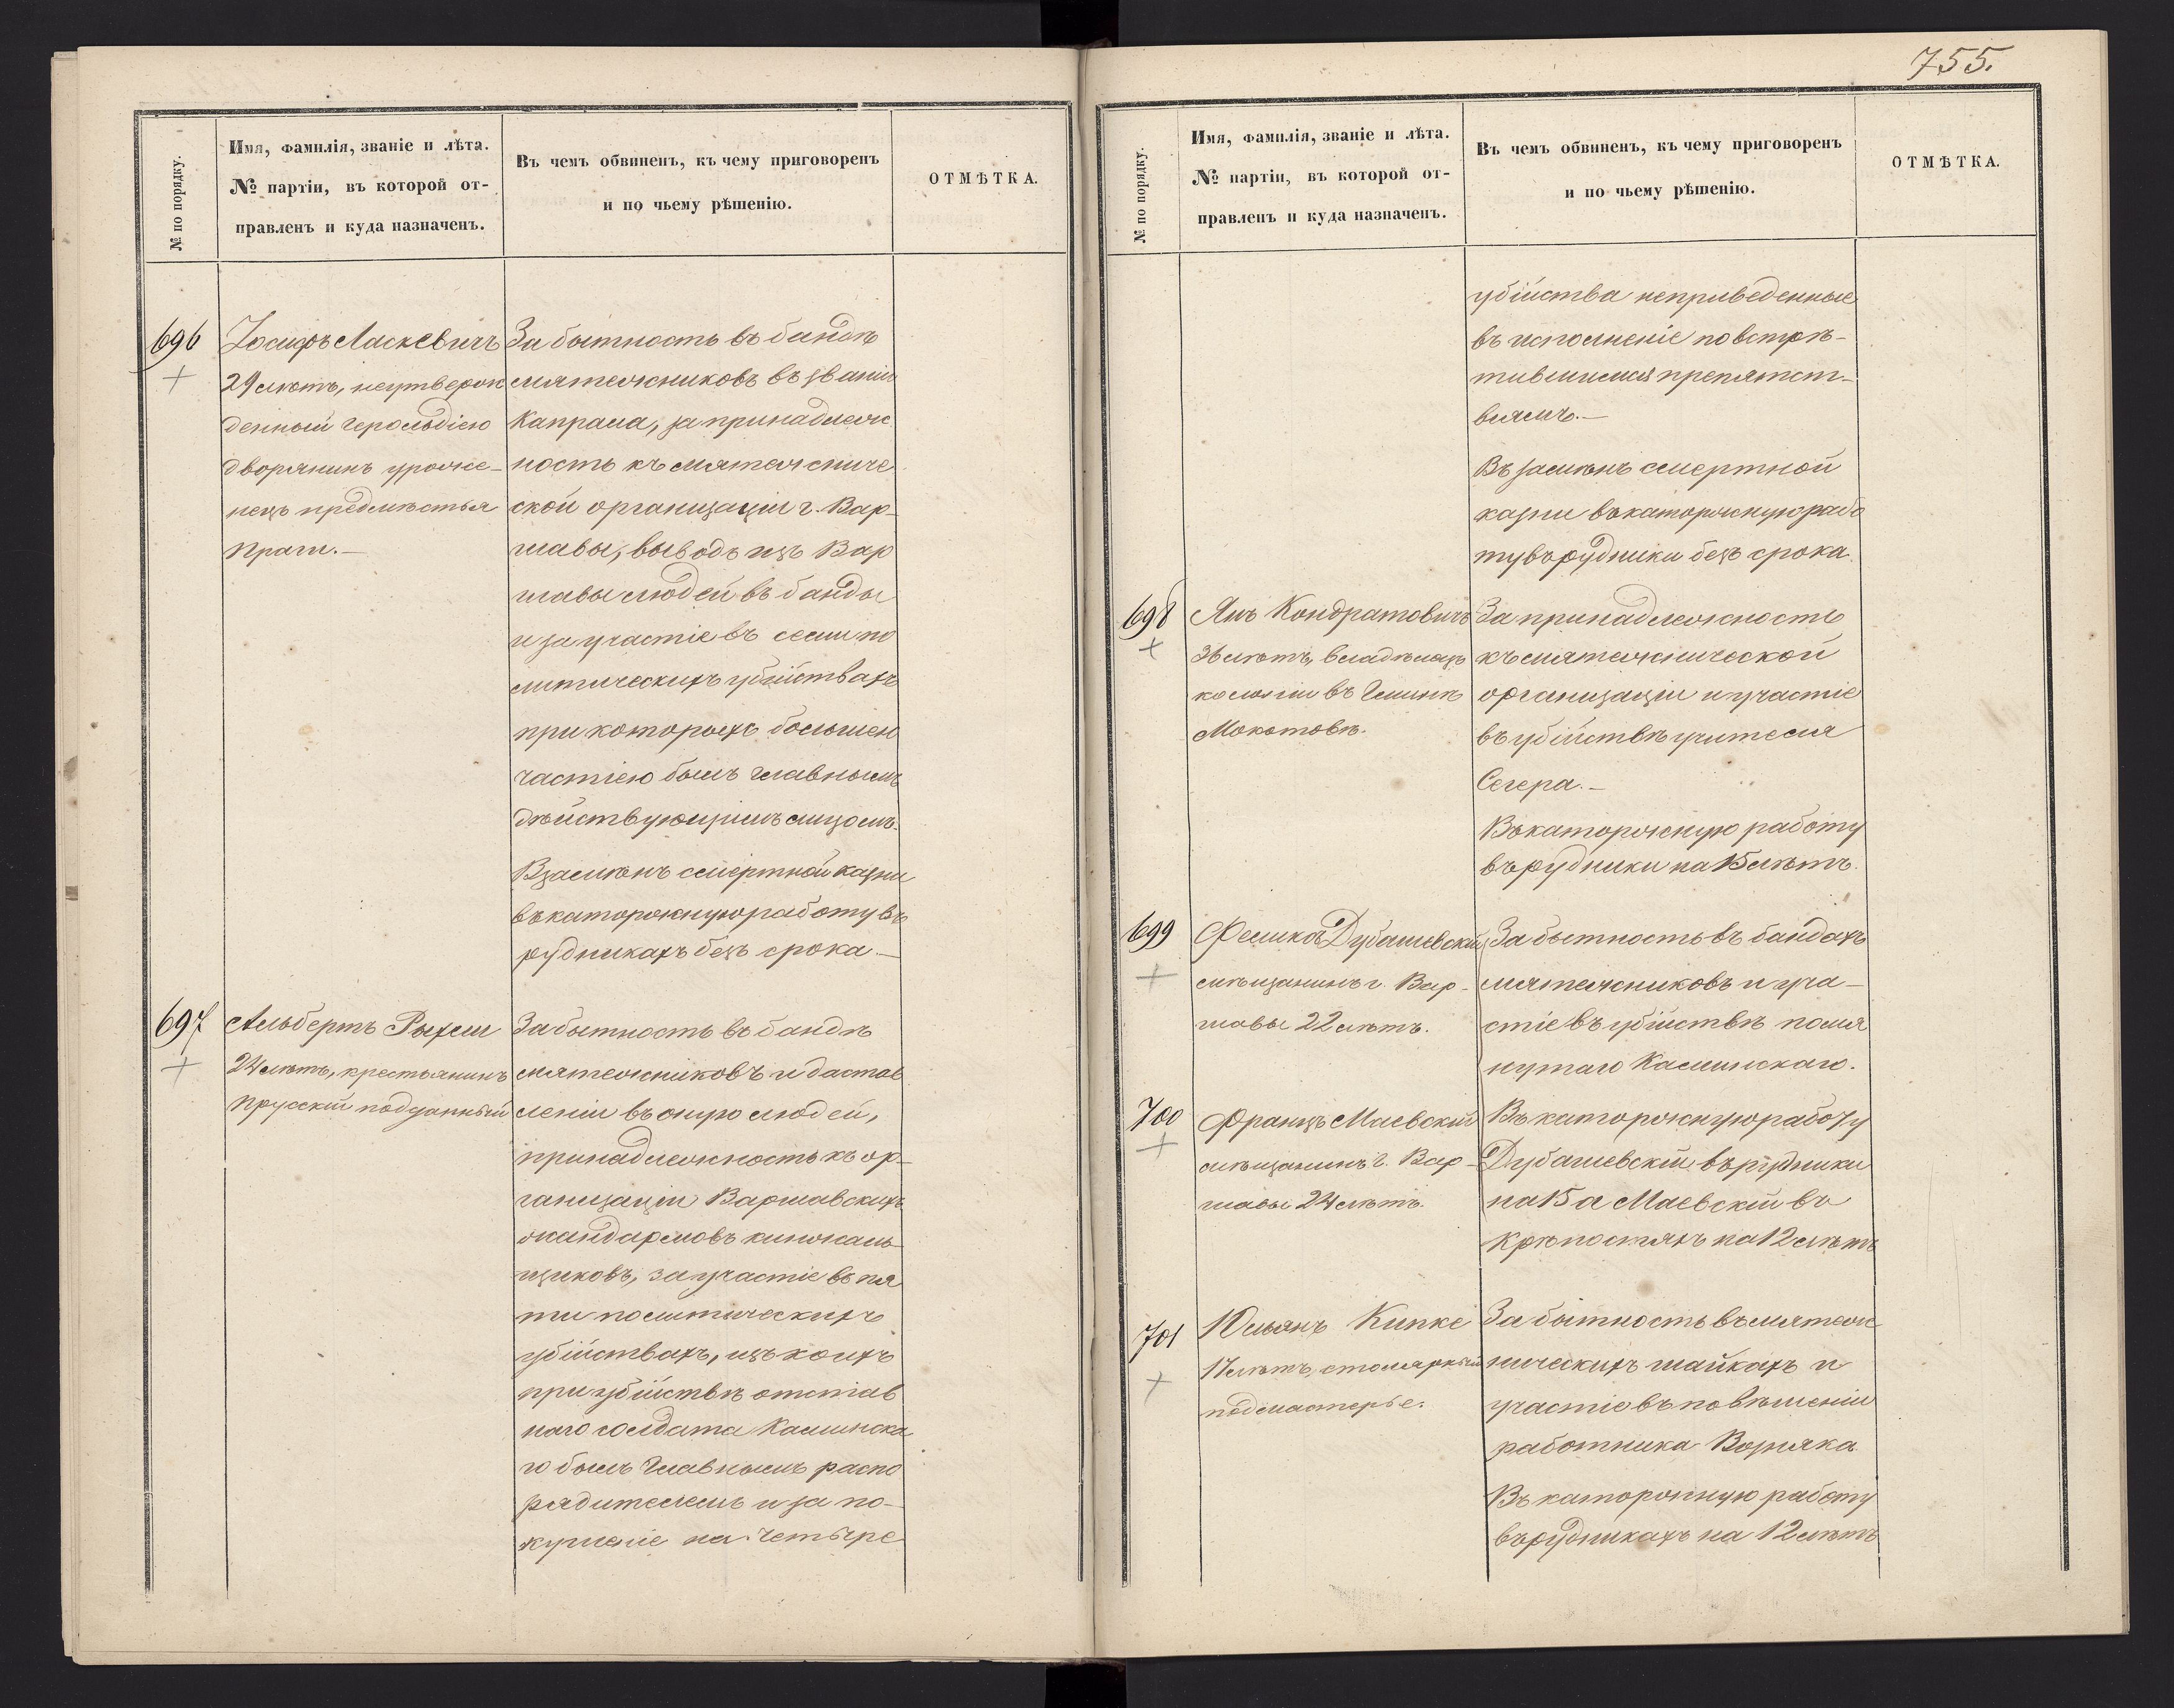 755.
№ по порядку.
Имя, фамилія, званіе и лѣта.
№ партіи, въ которой от-
правленъ и куда назначенъ.
Въ чемъ обвиненъ, къ чему приговоренъ
и по чьему рѣшенію.
ОТМѢТКА.
696
Іосифъ Ласкевичъ
29 лѣтъ, неутверж
денный герольдіею
дворянинъ уроже-
нецъ предмѣстья
Праги.—
За бытность въ бандѣ
мятежниковъ въ званіи
капрала, за принадлеж
ность къ мятежниче
ской организаціи г. Вар-
шавы, выводъ изъ Вар
шавы людей въ банды
и за участіе въ семи по
литическихъ убійствахъ
при которыхъ большею
частію былъ главнымъ
дѣйствующимъ лицомъ.
Взамѣнъ смертной казни
въ каторжную работу въ
рудникахъ безъ срока.—
697
Альбертъ Рыхели
24 лѣтъ, крестьянинъ
прусскій подданный
За бытность въ бандѣ
мятежниковъ и достав
леніи въ оную людей,
принадлежность къ ор-
ганизаціи Варшавскихъ
жандармовъ кинжаль-
щиковъ, за участіе въ пя
ти политическихъ
убійствахъ, изъ коихъ
при убійствѣ отстав
наго солдата Каминска
го былъ главнымъ распо
рядителемъ и за по-
кушеніе на четыре
№ по порядку.
Имя, фамилія, званіе и лѣта.
№ партіи, въ которой от-
правленъ и куда назначенъ.
Въ чемъ обвиненъ, къ чему приговоренъ
и по чьему рѣшенію.
ОТМѢТКА.
убійства неприведенные
въ исполненіе по встрѣ-
тившимся препятст-
віямъ.—
Въ замѣнъ смертной
казни въ каторжную рабо
ту въ рудники безъ срока.
698
Янъ Кондратовичъ
36 лѣтъ, владѣлецъ
колоніи въ Гминѣ
Мокотовъ.
За принадлежность
къ мятежнической
организаціи и участіе
въ убійствѣ учителя
Сегера.—
Въ каторжную работу
въ рудники на 15 лѣтъ.
699
Феликсъ Дубашевскій
мѣщанинъ г. Вар-
шавы 22 лѣтъ.
За бытность въ бандахъ
мятежниковъ и уча-
стіе въ убійствѣ помя
нутаго Каминскаго.
700
Францъ Маевскій
мѣщанинъ г. Вар-
шавы 24 лѣтъ.
Въ каторжную работу
Дубашевскій въ рудники
на 15 а Маевскій въ
крѣпостяхъ на 12 лѣтъ
701
Юльянъ Кипке
17 лѣтъ, столярный
подмастерье.
За бытность въ мятеж
ническихъ шайкахъ и
участіе въ повѣшеніи
работника Возняка
Въ каторжную работу
въ рудникахъ на 12 лѣтъ